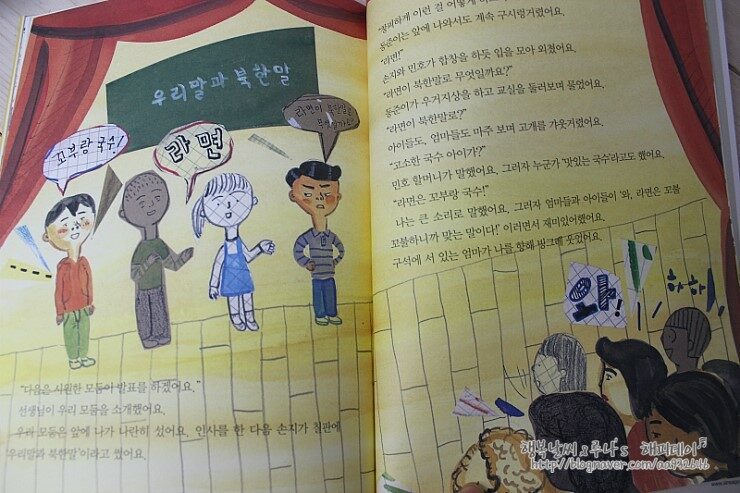 우리말과 북한말
꼬부랑 국수!
라면
라면이 북한말로
무엇일까요?
"다음은 시원한 모둠이 발표를 하겠어요."
선생님이 우리 모둠을 소개했어요.
우리 모둠은 앞에 나가 나란히 섰어요. 인사를 한 다음 손지가 칠판에
'우리말과 북한말'이라고 썼어요.
이런 걸 어떻게
동준이는 앞에 나와서도 계속 구시렁거렸어요.
"라면!"
손지와 민호가 합창을 하듯 입을 모아 외쳤어요.
"라면이 북한말로 무엇일까요?"
"라면이 북한말로?"
동준이가 우거지상을 하고 교실을 둘러보며 물었어요.
아이들도, 엄마들도 마주 보며 고개를 갸웃거렸어요.
"고소한 국수 아이가?"
민호 할머니가 말했어요. 그러자 누군가 '맛있는 국수'라고도 했어요.
"라면은 꼬부랑 국수!"
나는 큰 소리로 말했어요. 그러자 엄마들과 아이들이 '와, 라면은 꼬불
꼬불하니까 맞는 말이다!' 이러면서 재미있어했어요.
구석에 서 있는 엄마가 나를 향해 빙그레 웃었어요.
와!
하하!
행복날씨 루나's 해피데이
http://blog.naver.com/aa922616